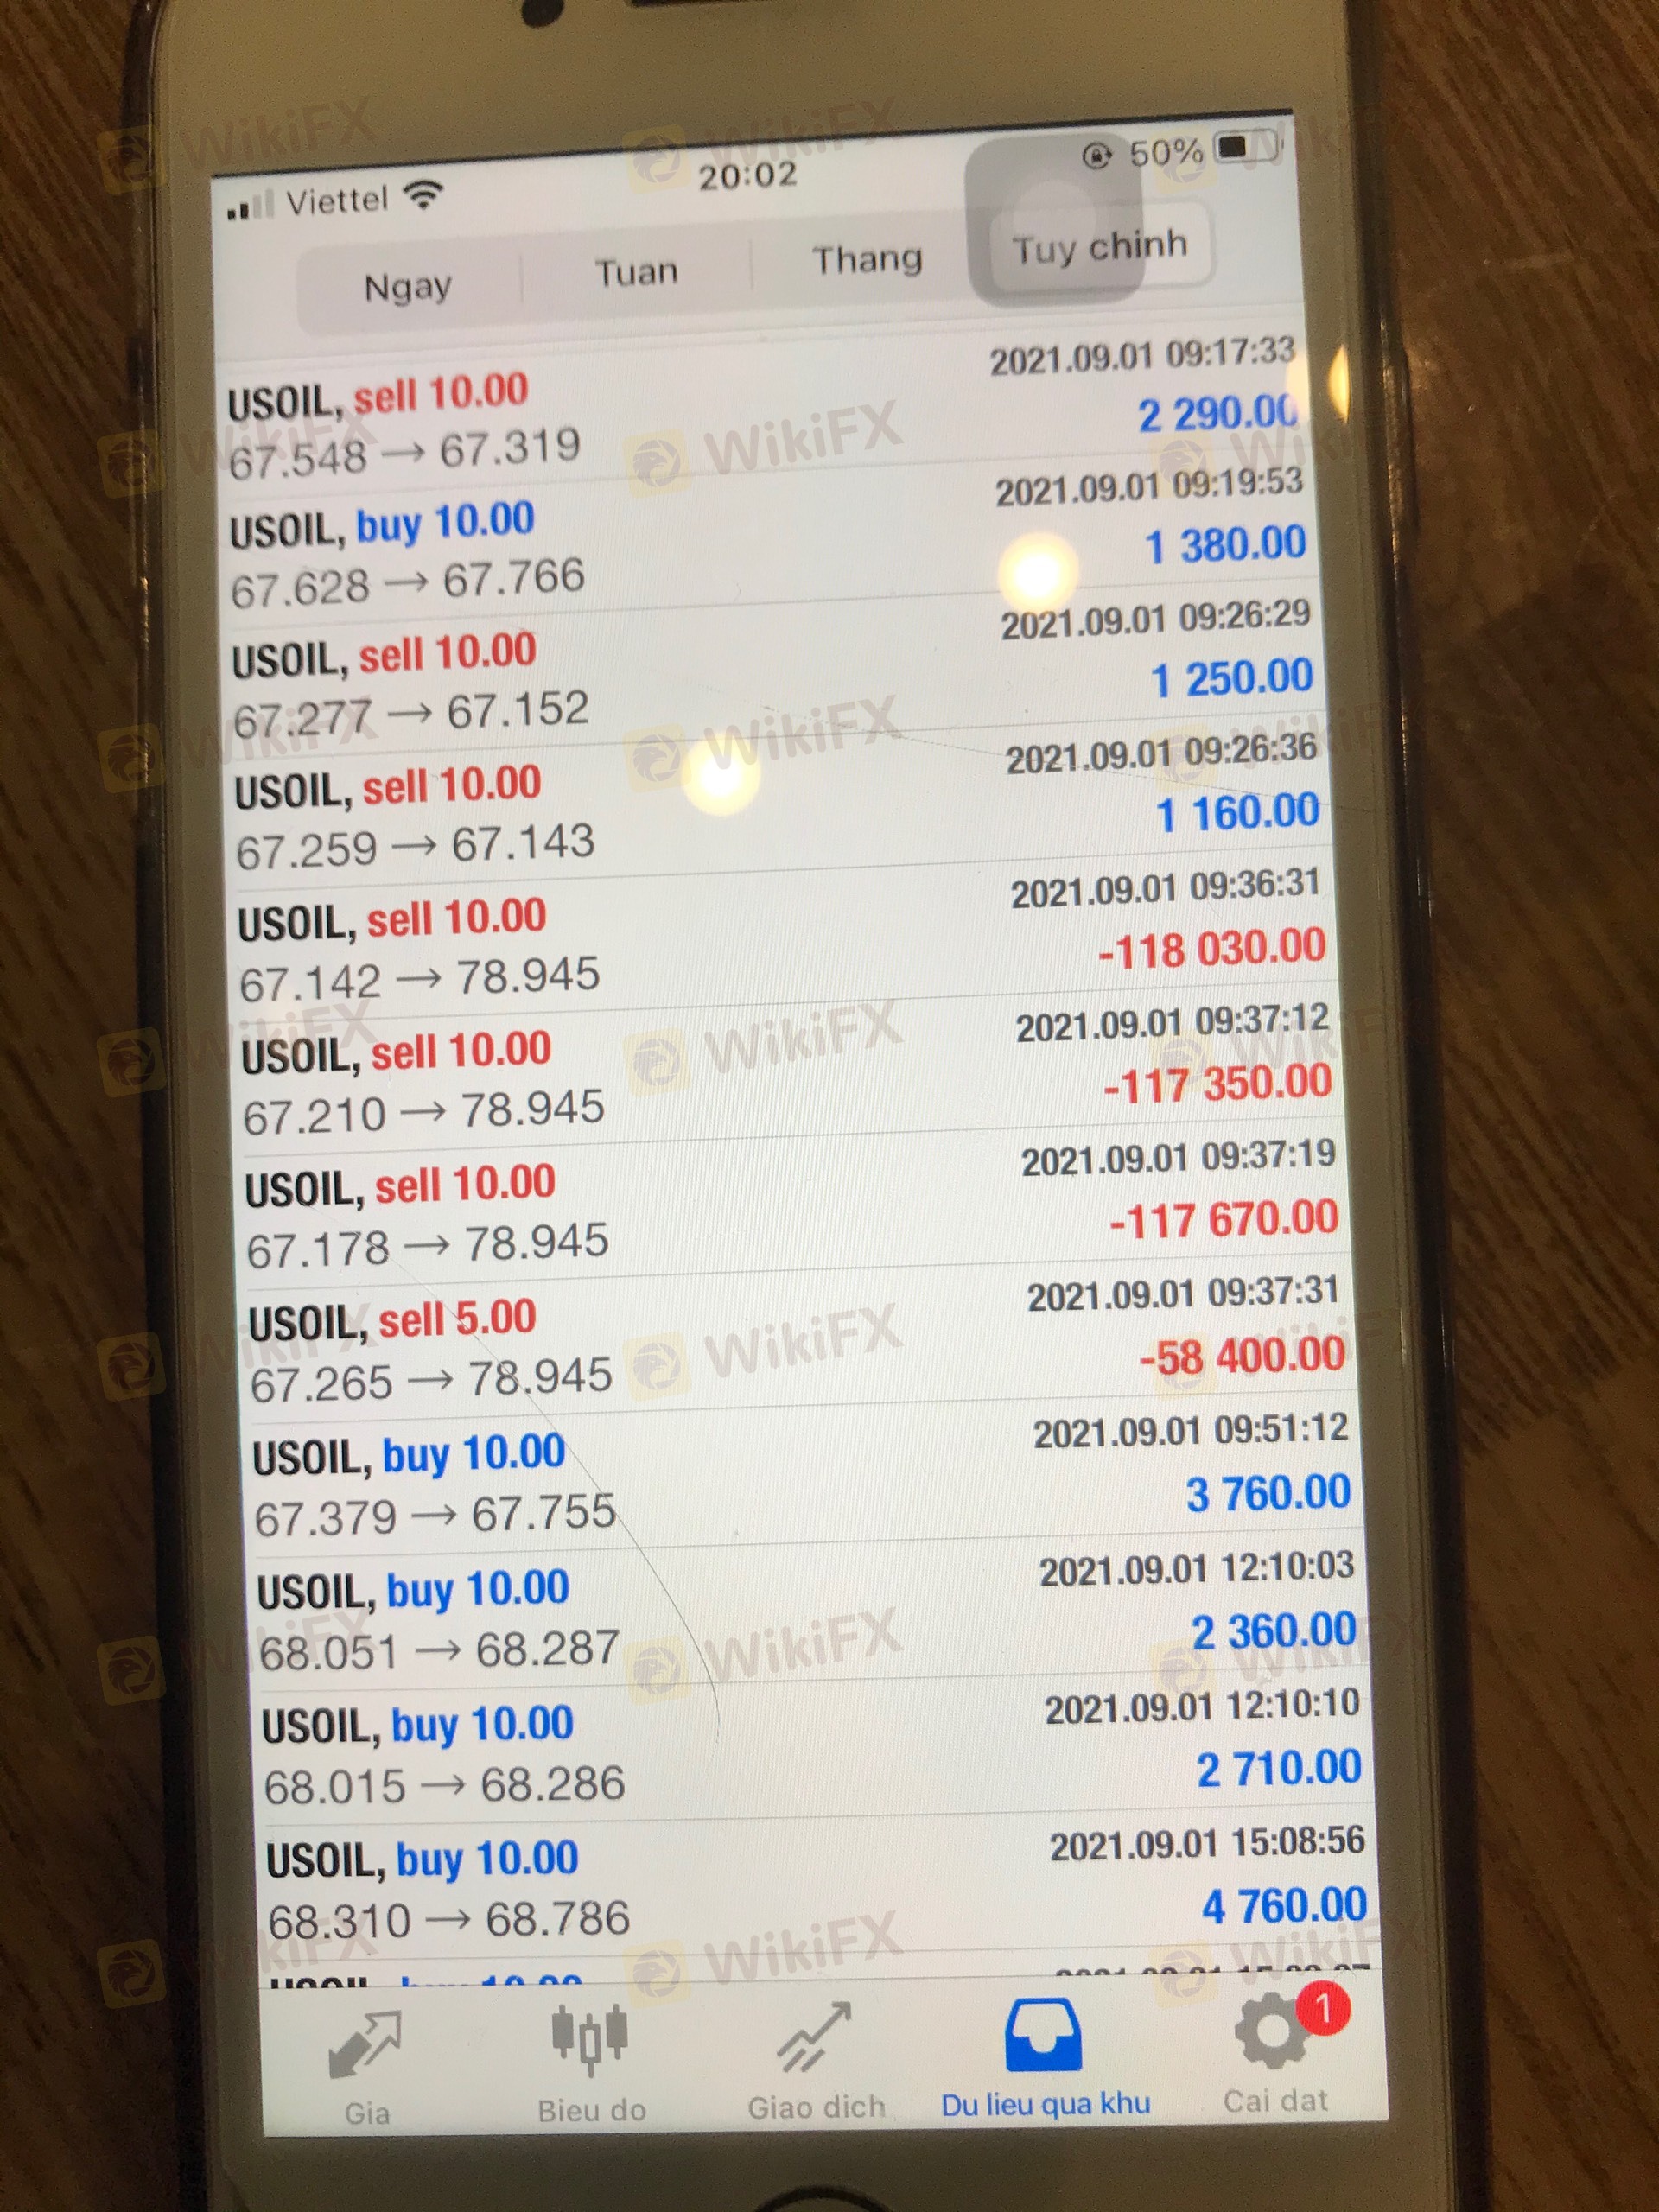 Viettel 20:02 50%
Ngay Tuan Thang Tuy chinh
USOIL, sell 10.00 2021.09.01 09:17:33
67.548 → 67.319 2 290.00
USOIL, buy 10.00 2021.09.01 09:19:53
67.628 → 67.766 1 380.00
USOIL, sell 10.00 2021.09.01 09:26:29
67.277 → 67.152 1 250.00
USOIL, sell 10.00 2021.09.01 09:26:36
67.259 → 67.143 1 160.00
USOIL, sell 10.00 2021.09.01 09:36:31
67.142 → 78.945 -118 030.00
USOIL, sell 10.00 2021.09.01 09:37:12
67.210 → 78.945 -117 350.00
USOIL, sell 10.00 2021.09.01 09:37:19
67.178 → 78.945 -117 670.00
USOIL, sell 5.00 2021.09.01 09:37:31
67.265 → 78.945 -58 400.00
USOIL, buy 10.00 2021.09.01 09:51:12
67.379 → 67.755 3 760.00
USOIL, buy 10.00 2021.09.01 12:10:03
68.051 → 68.287 2 360.00
USOIL, buy 10.00 2021.09.01 12:10:10
68.015 → 68.286 2 710.00
USOIL, buy 10.00 2021.09.01 15:08:56
68.310 → 68.786 4 760.00
1
Gia Bieu do Giao dich Du lieu qua khu Cai dat
WikiFX